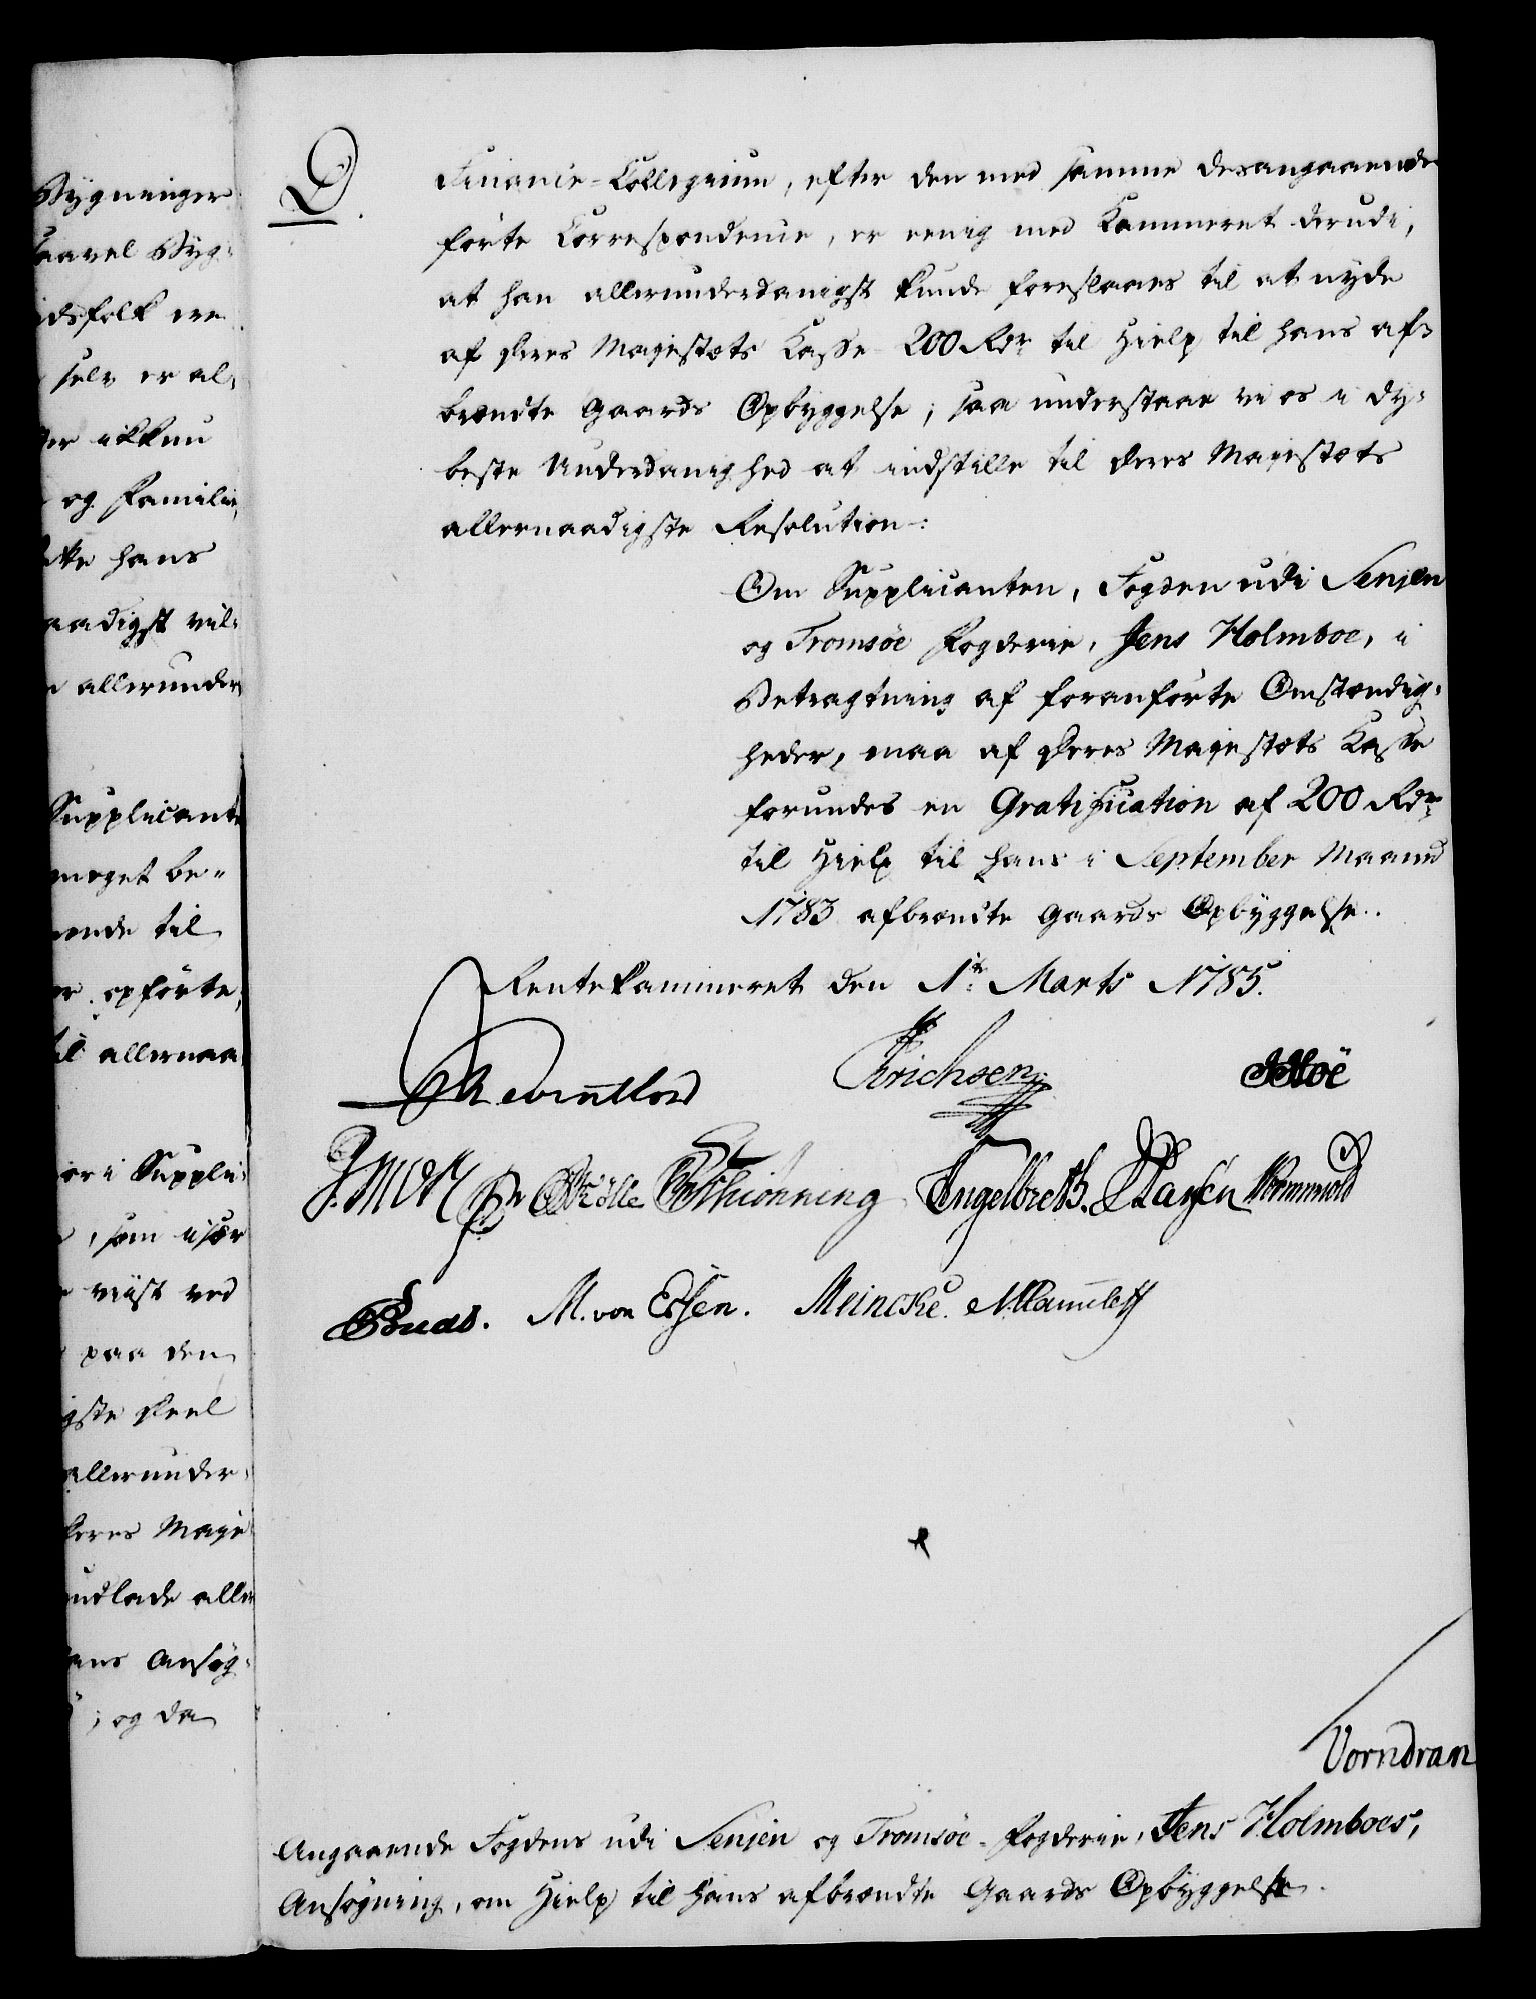 Bygninger
saavel Byg-
idsfolk ere
selv er al-
er ikkun
og Familie,
hans
aadigst vil-
allerunder
Supplicante
meget be-
ende til
opförte,
til allernaa
er i Suppli-
, som især
viist ved
paa den
gste Deel
allerunder-
Deres Maje
udlade aller
ans Ansög-
; og da
D.
Finance-Collegium, efter den med samme desangaaende
förte Correspondence, er eenig med Kammeret derudi,
at han allerunderdanigst kunde foreslaaes til at nyde
af Deres Majestæts Casse 200 Rdr til Hielp til hans af-
brændte Gaards Opbyggelse; saa understaae vi os i dy-
beste Underdanighed at indstille til Deres Majestæts
allernaadigste Resolution:
Om Supplicanten, Fogden udi Senjen
og Tromsöe Fogderie, Jens Holmboe, i
Betragtning af foranförte Omstændig-
heder, maa af Deres Majestæts Casse
forundes en Gratification af 200 Rdr
til Hielp til hans i September Maaned
1783 afbrændte Gaards Opbyggelse.
Rentekammeret den 1te Marts 1785.
Reventlow Erichsen
Schiönning Engelbreth.
M. von Essen. Meincke.
Vorndran
Angaaende Fogdens udi Senjen og Tromsöe-Fogderie, Jens Holmboes,
Ansögning, om Hielp til hans afbrændte Gaards Opbyggelse.